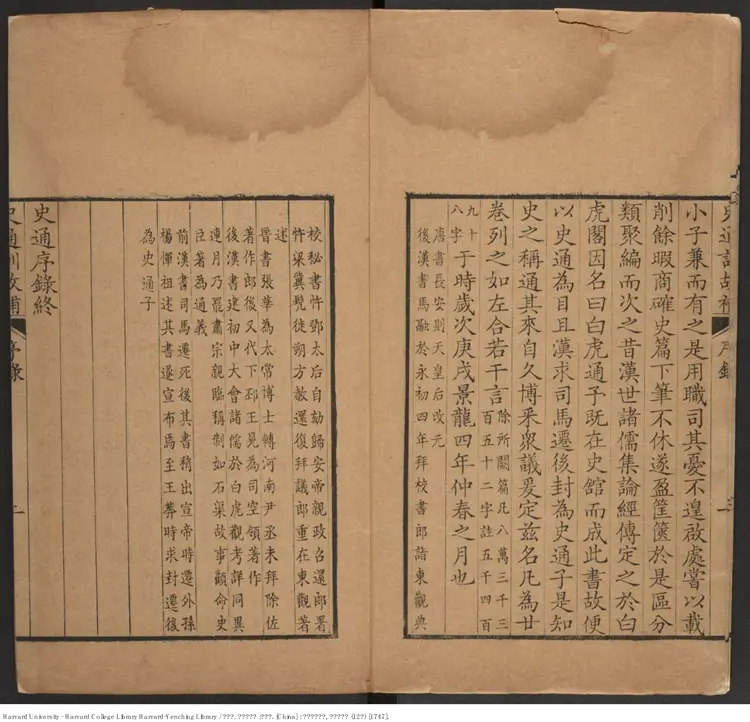 史通訓故補 序錄
小子兼而有之是用職司其憂不遑啟處嘗以載
削餘暇商確史篇下筆不休遂盈筐篋於是區分
類聚編而次之昔漢世諸儒集論經傳定之於白
虎閣因名曰白虎通予既在史館而成此書故便
以史通為目且漢求司馬遷後封為史通子是知
史之稱通其來自久博釆衆議爰定兹名凡為廿
卷列之如左合若干言除所闕篇凡八萬三千三
百五十二字註五千四百
九十
八字
于時歲次庚戌景龍四年仲春之月也
唐書長安則天皇后改元
後漢書馬融於永初四年拜校書郎詣東觀典
校秘書忤鄧太后自劾歸安帝親政召還郎署
忤梁冀髠徙朔方赦還復拜議郎重在東觀著
述
晉書張華為太常博士轉河南尹丞未拜除佐
著作郎後又代下邳王晃為司空領著作
後漢書建初中大會諸儒於白虎觀考詳同異
連月乃罷肅宗親臨稱制如石渠故事顧命史
臣著為通義
前漢書司馬遷死後其書稍出宣帝時遷外孫
楊惲祖述其書遂宣布焉至王莽時求封遷後
為史通子
史通序錄終
史通訓故補 序錄
Harvard University - Harvard College Library Harvard-Yenching Library / ???. ????? :???. [China] : ??????, ????? (12?) [1747].